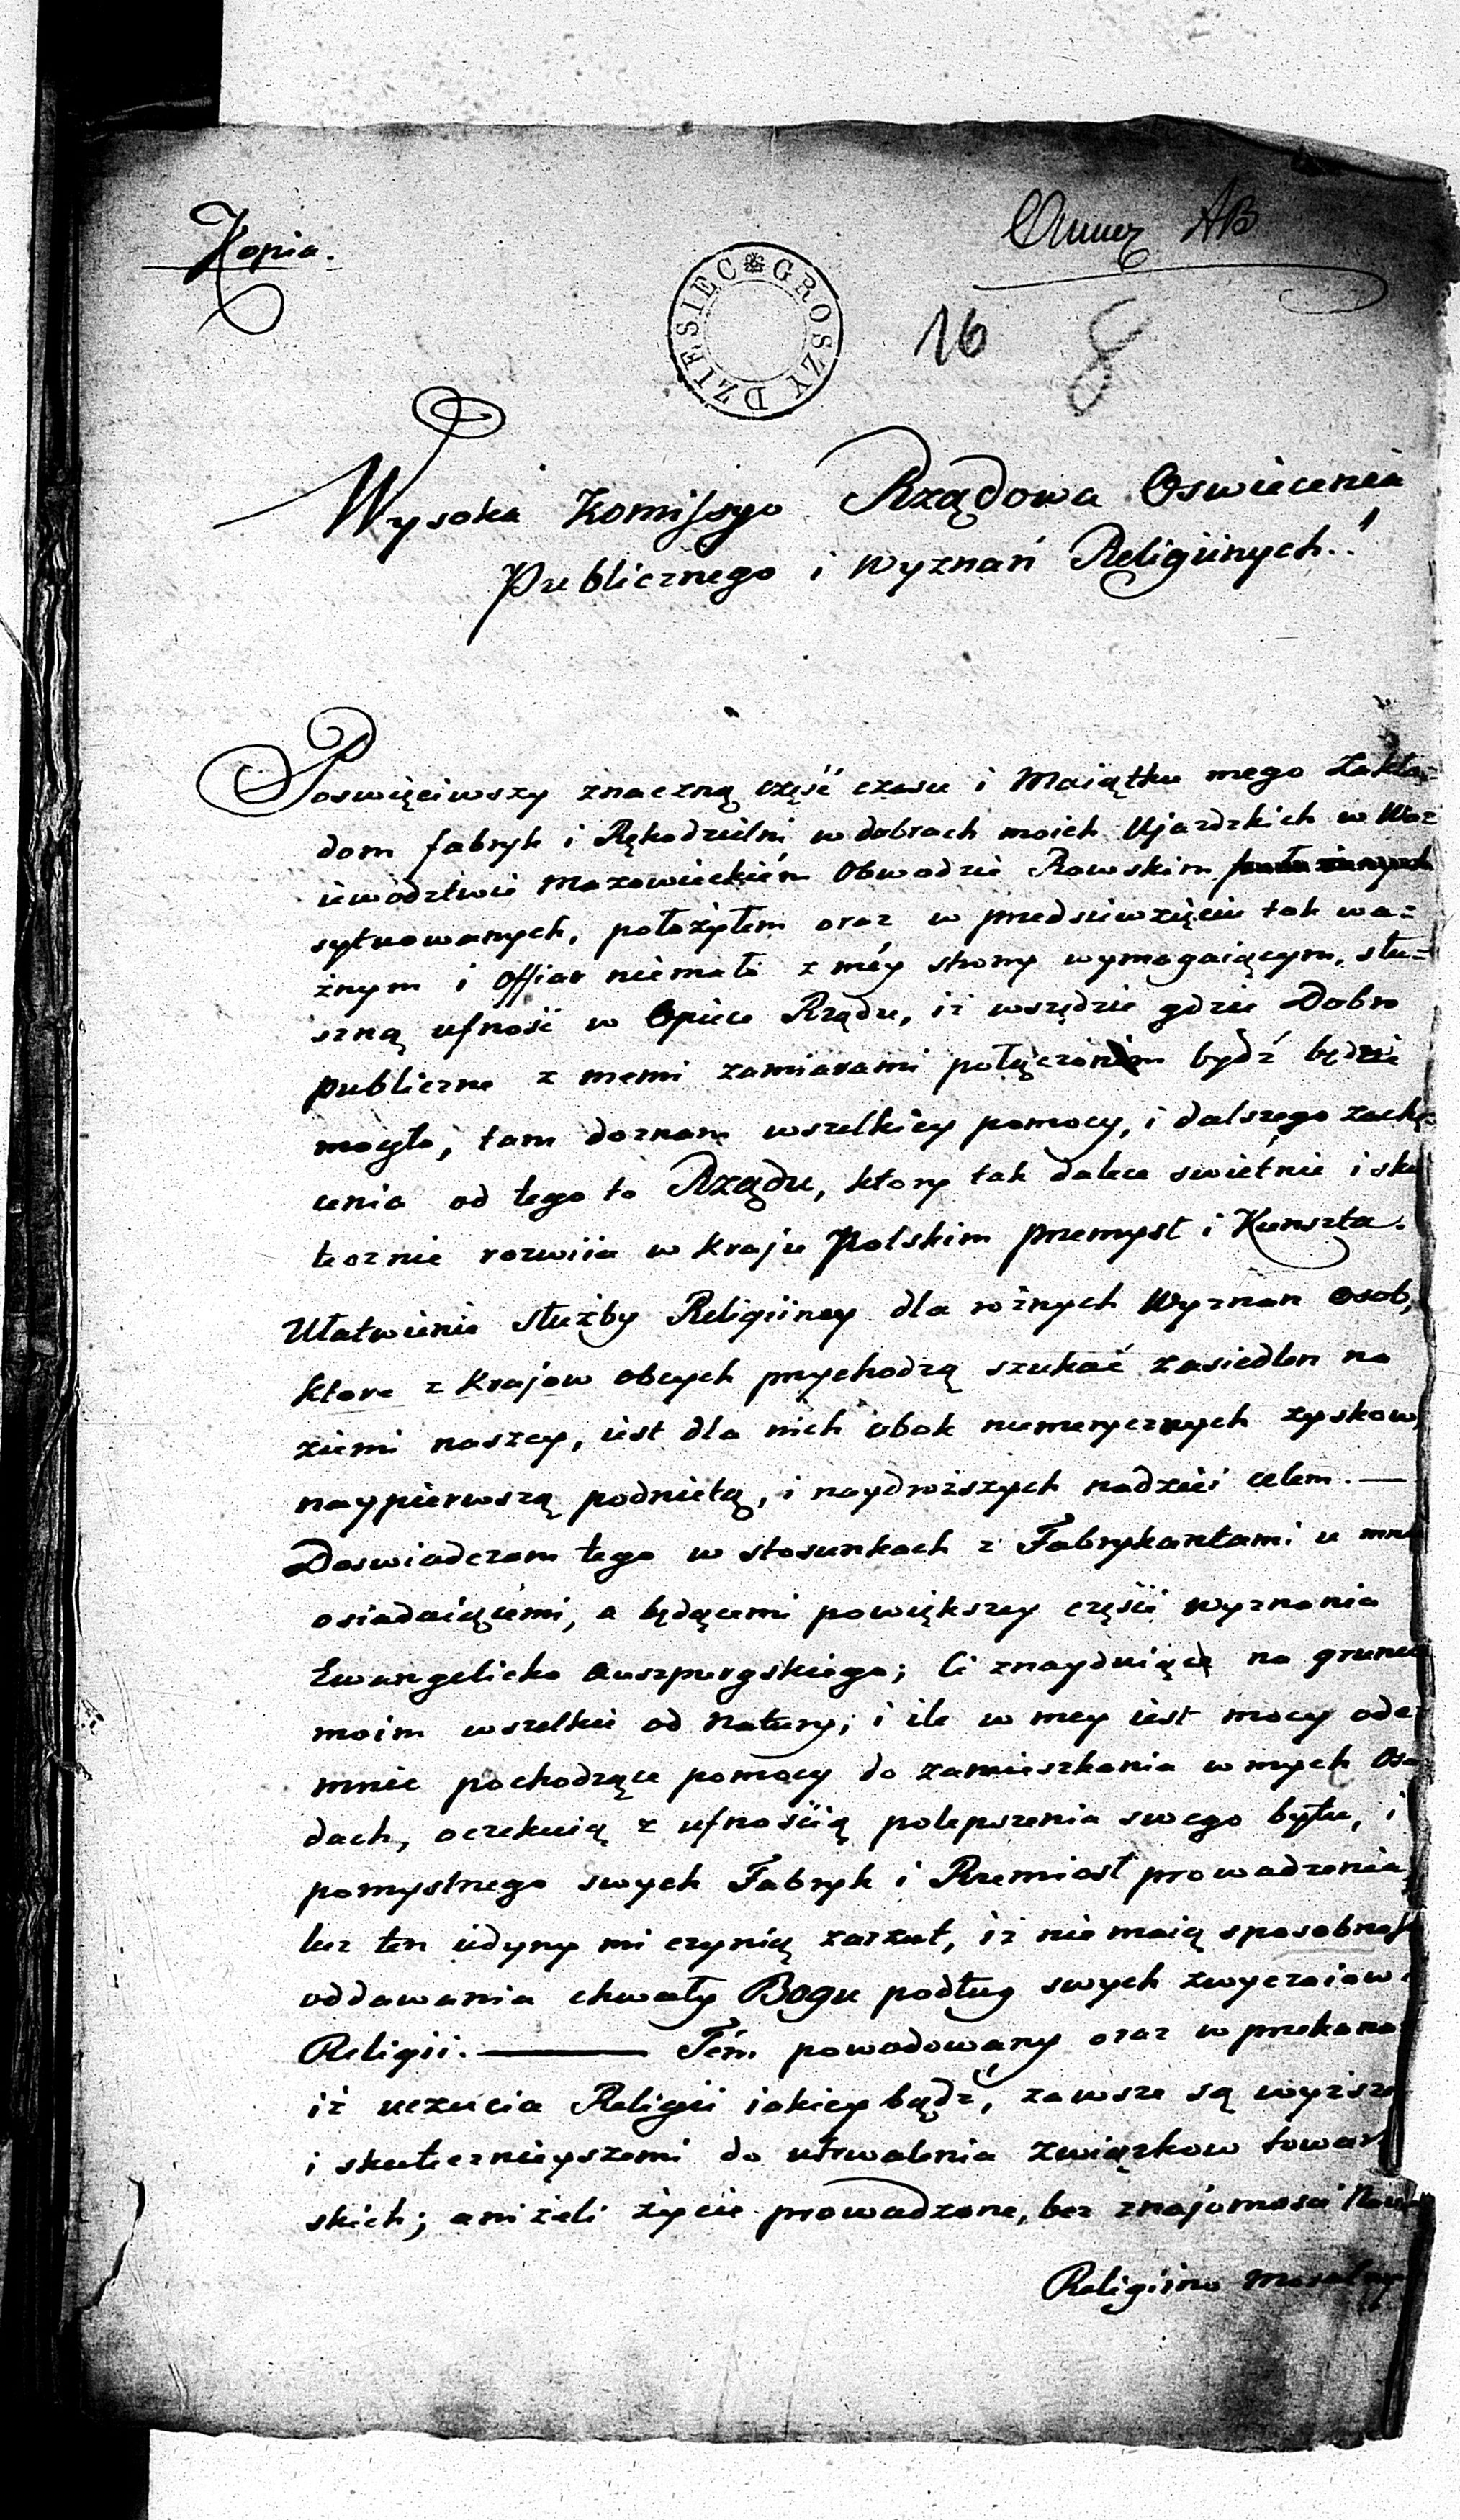 Kopia.
Annex AB
DZIESIEC GROSZY
16 8
Wysoka Komissyo Rządowa Oswiecenia
Publicznego i Wyznań Religiinych!
Poswięciwszy znaczną część czasu i Maiątku mego Zakła=
dom fabryk i Rękodzielni w dobrach moich Ujazdzkich w Wo=
iewodztwie Mazowieckiém Obwodzie Rawskim
sytuowanych, położyłem oraz w przedsiewzięciu tak wa=
żnym i Offiar niemało z méy strony wymagaiącym, słu=
szną ufność w Opiece Rządu, iż wszędzie gdzie Dobro
publiczne z memi zamiarami połączonem bydź będzie
mogło, tam doznam wszelkiey pomocy, i dalszego zachę
cenia od tego to Rządu, ktory tak dalece swietnie i sku
tecznie rozwiia w kraju Polskim przemysł i Kunszta.
Ułatwienie służby Religiiney dla rożnych Wyznan osob,
ktore z Krajow obcych przychodzą szukać zasiedlen na
ziemi naszey, iest dla nich obok numerycznych zyskow,
naypierwszą podnietą, i naydroższych nadziei celem. —
Doswiadczam tego w stosunkach z Fabrykantami u mnie
osiadaiącemi, a będącemi powiększey części wyznania
Ewangelicko Auszpurgskiego; Ci znayduiąc na gruncie
moim wszelkie od Natury; i ile w mey iest mocy ode=
mnie pochodzące pomocy do zamieszkania w mych Osa
dach, oczekuią z ufnością polepszenia swego bytu, i
pomyslnego swych Fabryk i Rzemiosł prowadzenia,
lecz ten iedyny mi czynią zarzut, iż nie maią sposobnoś
oddawania chwały Bogu podług swych zwyczaiow i
Religii. — Tém powodowany oraz w przekona
iż uczucia Religii iakiey bądź, zawsze są wyższe
i skutecznieyszemi do utrwalenia związkow towar
skich; aniżeli życie prowadzone, bez znajomości
Religiino